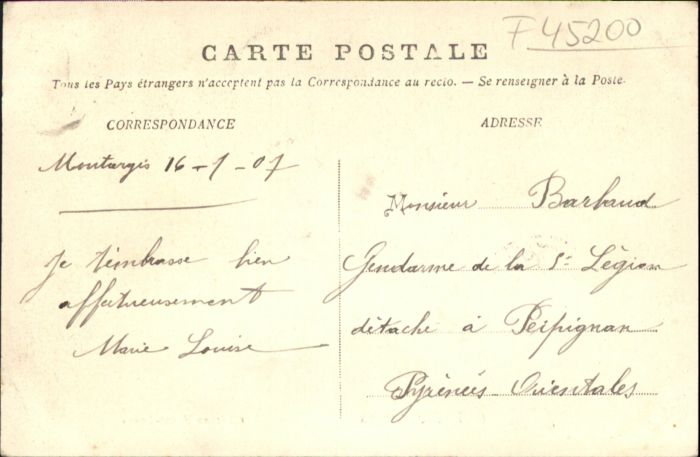 F45200
CARTE POSTALE
Tous les Pays étrangers n'acceptent pas la Correspondance au recto. — Se renseigner à la Poste.
CORRESPONDANCE
ADRESSE
Montargis 16-7-07
Je t'embrasse bien
affectueusement
Marie Louise
Monsieur Barbaud
Gendarme de la 5e Légion
détaché à Perpignan
Pyrénées Orientales